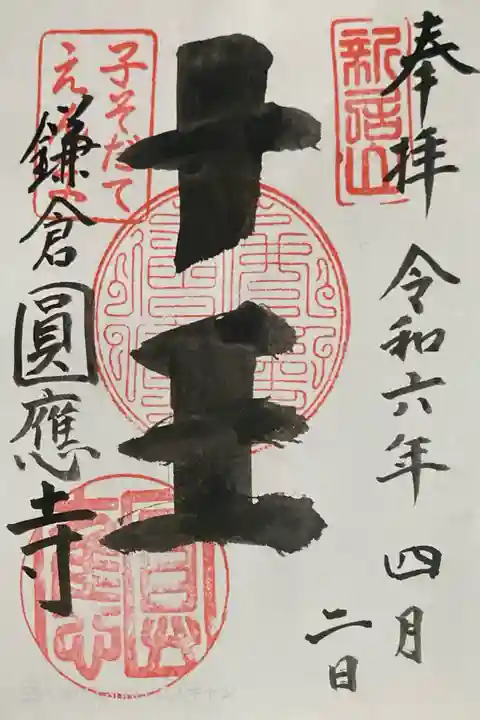 奉拝
新居山
令和六年
四月
二日
十王
子そだて
え
鎌倉圓應寺